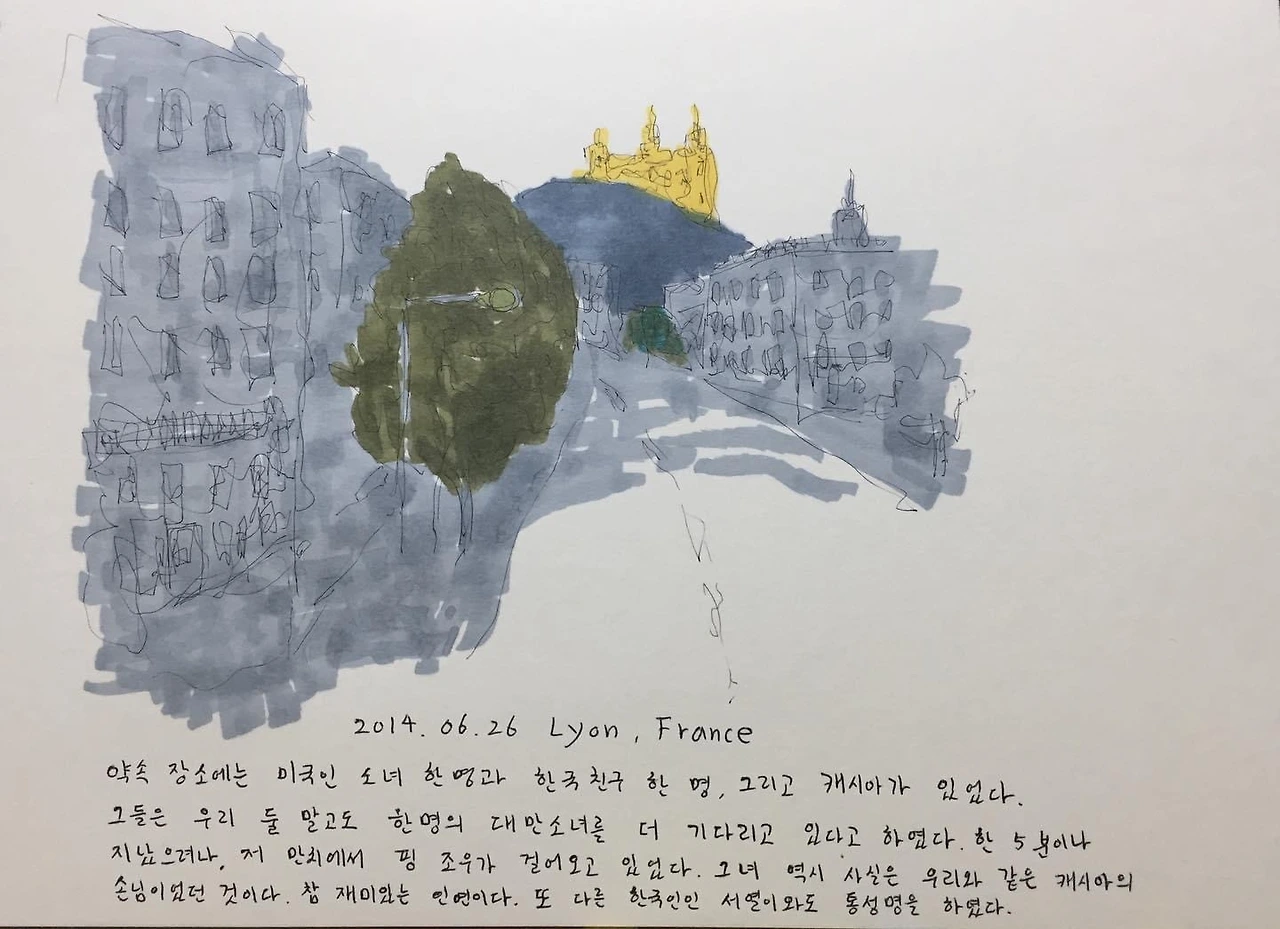 2014. 06. 26 Lyon, France
약속 장소에는 미국인 소녀 한 명과 한국친구 한 명, 그리고 캐시아가 있었다.
그들은 우리 둘 말고도 한명의 대만소녀를 더 기다리고 있다고 하였다. 한 5분이나
지났으려나, 저 만치에서 핑 조우가 걸어오고 있었다. 그녀 역시 사실은 우리와 같은 캐시아의
손님이었던 것이다. 참 재미있는 인연이다. 또 다른 한국인인 서열이와도 통성명을 하였다.